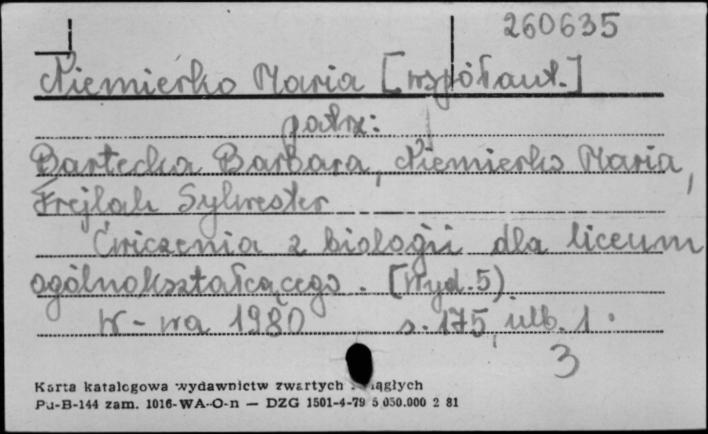 260635
Niemierko Maria [współaut.]
patrz:
Bartecka Barbara, Niemierko Maria,
Frejlak Sylwester
Ćwiczenia z biologii dla liceum
ogólnokształcącego. [Wyd.5).
W-wa 1980 s. 175, ulb. 1.
3
Karta katalogowa wydawnictw zwartych i ciągłych
Pu-B-144 zam. 1016-WA-O-n — DZG 1501-4-79 5 050.000 2 81